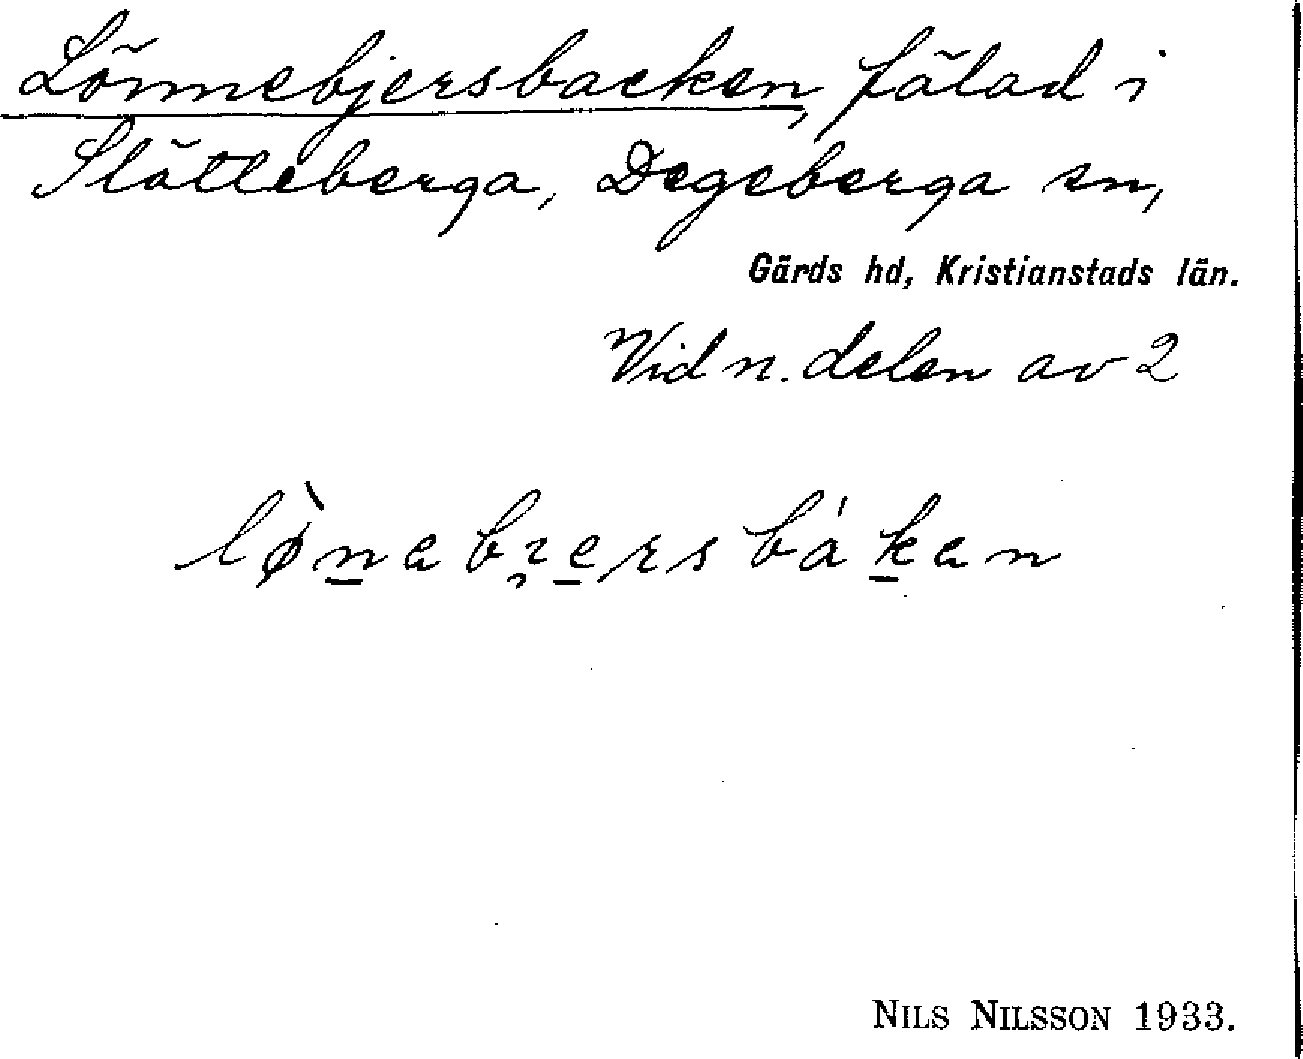 Lönnebjersbacken, fälad i
Slätteberga, Degeberga sn,
Gärds hd, Kristianstads län.
Vid n. delen av 2
NILS NILSSON 1933.